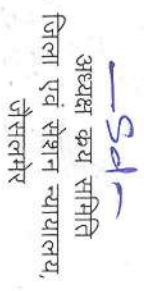 —Sd—
अध्यक्ष क्रय समिति
जिला एवं सेशन न्यायालय,
जैसलमेर